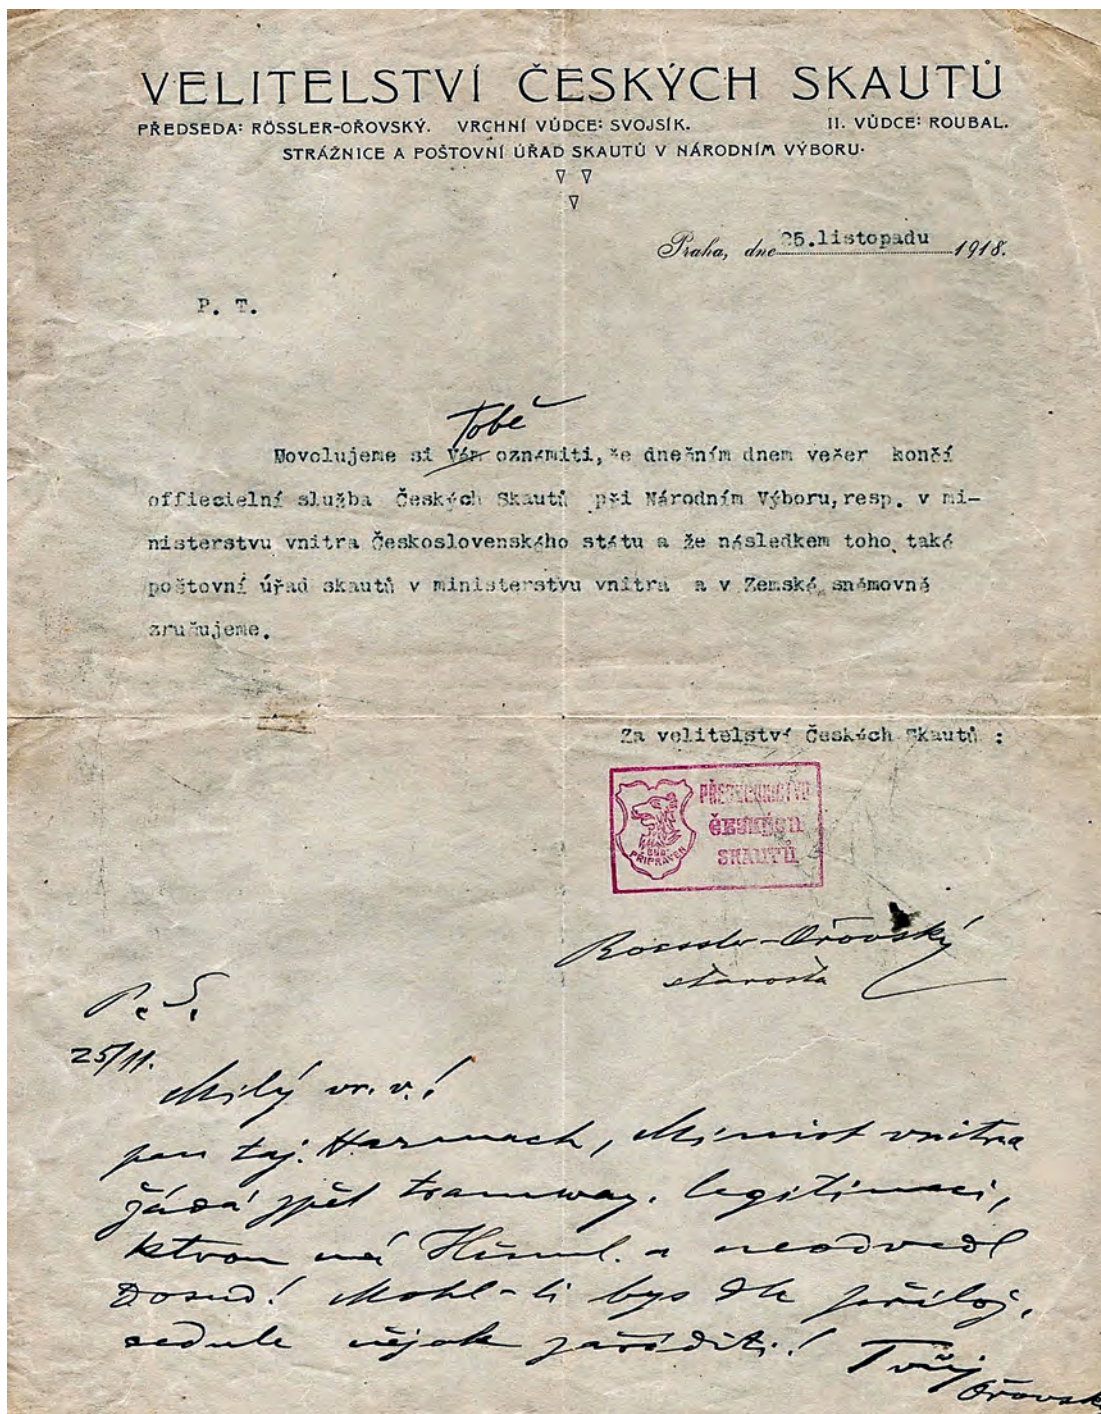 VELITELSTVÍ ČESKÝCH SKAUTŮ
PŘEDSEDA: RÖSSLER-OŘOVSKÝ. VRCHNÍ VŮDCE: SVOJSÍK. II. VŮDCE: ROUBAL.
STRÁŽNICE A POŠTOVNÍ ÚŘAD SKAUTŮ V NÁRODNÍM VÝBORU.
Praha, dne 25.listopadu 1918.
P. T.
Tobě
Dovolujeme si Vám oznámiti, že dnešním dnem večer končí
offiecielní služba Českých Skautů při Národním Výboru, resp. v mi-
nisterstvu vnitra Československého státu a že následkem toho také
poštovní úřad skautů v ministerstvu vnitra a v Zemské sněmovně
zrušujeme.
Za velitelství Českých Skautů :
PŘEDSEDNICTVO
ČESKÝCH
SKAUTŮ
BUĎ
PŘIPRAVEN
Roessler-Ořovský
starosta
P. S.
25/11.
Milý vr. v.!
pan taj. Harmach, Minist vnitra
žádá zpět tramway. legitimaci,
kterou má a neodvedl
dosud! Mohl-li bys dle přilož.
cedule nějak zaříditi!
Tvůj
Ořovský